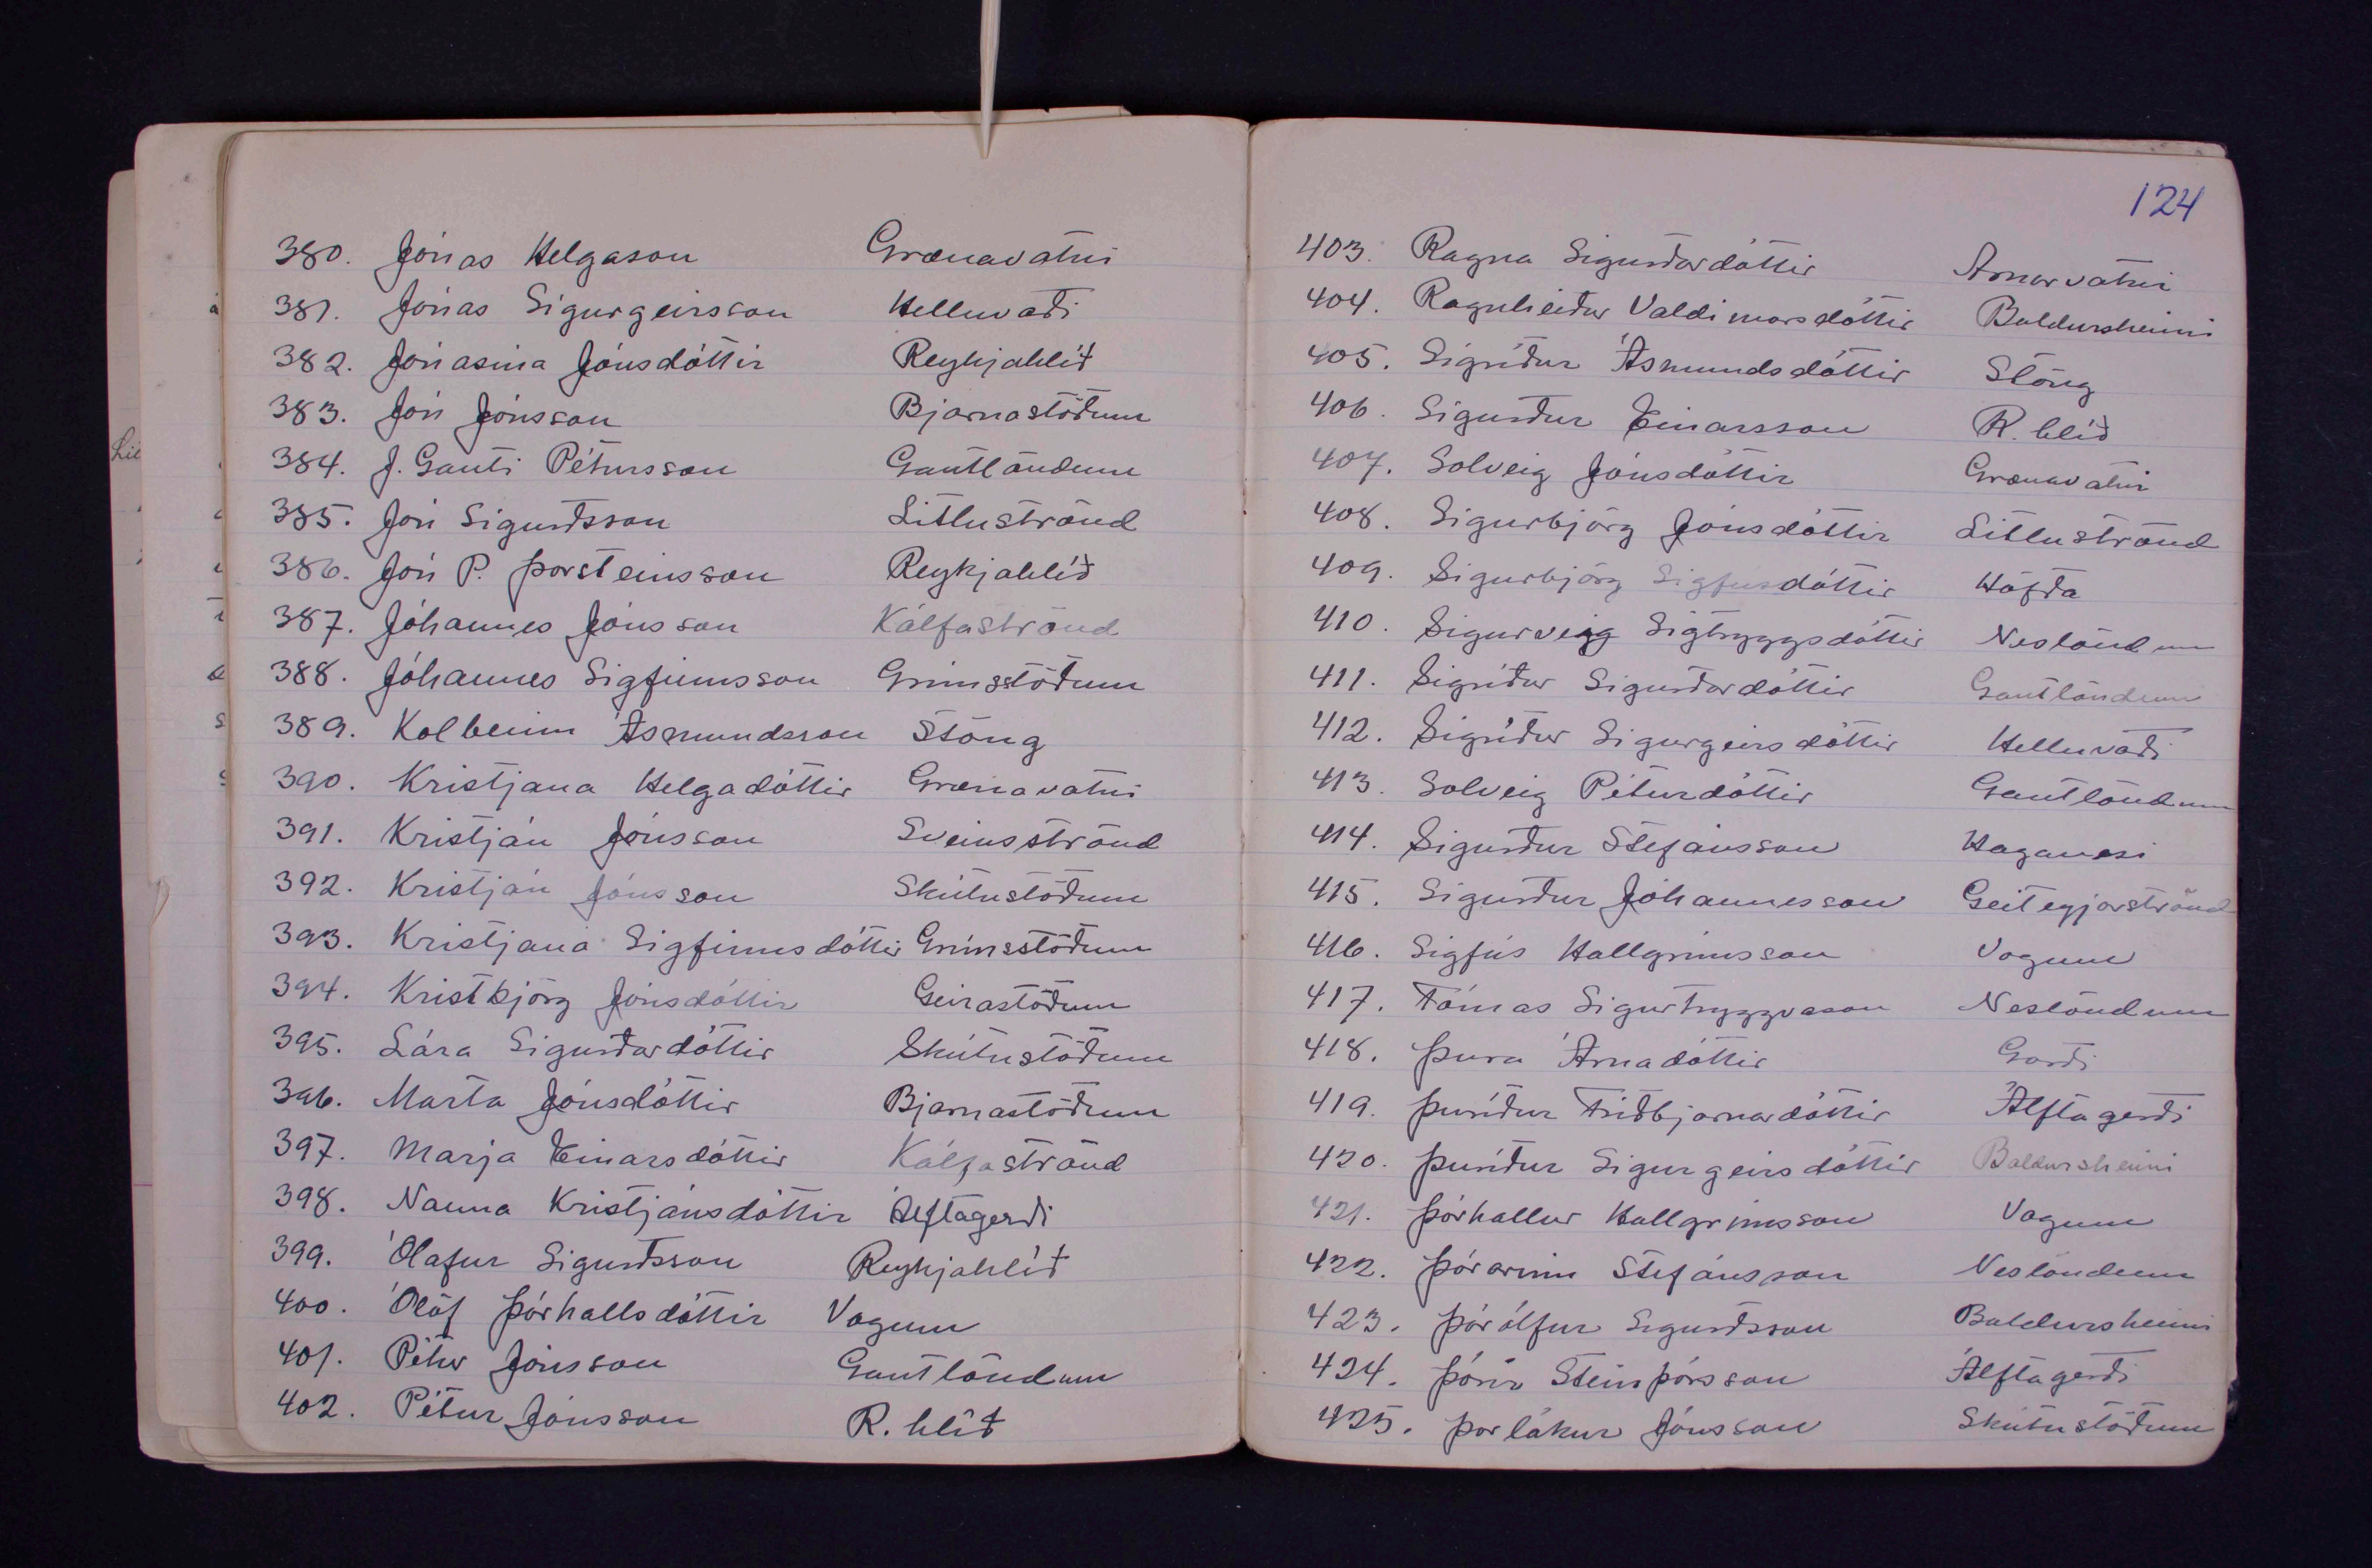 380. Jónas Helgason Grænavatni
381. Jónas Sigurgeirsson Helluvaði
382. Jónasina Jónsdóttir Reykjahlíð
383. Jón Jónsson Bjarnastöðum
384. J. Gauti Pétursson Gautlöndum
385. Jón Sigurðsson Litluströnd
386. Jón P. Þorsteinsson Reykjahlíð
387. Jóhannes Jónsson Kálfaströnd
388. Jóhannes Sigfinnsson Grímsstöðum
389. Kolbeinn Ásmundsson Stöng
390. Kristjana Helgadóttir Grænavatni
391. Kristján Jónsson Sveinsströnd
392. Kristján Jónsson Skútustöðum
393. Kristjana Sigfinnsdóttir Grímsstöðum
394. Kristbjörg Jónsdóttir Geirastöðum
395. Lára Sigurðardóttir Skútustöðum
396. Marta Jónsdóttir Bjarnastöðum
397. Marja Einarsdóttir Kálfaströnd
398. Nanna Kristjánsdóttir Álftagerði
399. Ólafur Sigurðsson Reykjahlíð
400. Ólöf Þórhallsdóttir Vogum
401. Pétur Jónsson Gautlöndum
402. Pétur Jónsson R. hlíð
124
403. Ragna Sigurðardóttir Arnarvatni
404. Ragnheiður Valdimarsdóttir Baldursheimi
405. Sigríður Ásmundsdóttir Stöng
406. Sigurður Einarsson R. hlíð
407. Solveig Jónsdóttir Grænavatni
408. Sigurbjörg Jónsdóttir Litluströnd
409. Sigurbjörg Sigfúsdóttir Höfða
410. Sigurveig Sigtryggsdóttir Neslöndum
411. Sigríður Sigurðardóttir Gautlöndum
412. Sigríður Sigurgeirsdóttir Helluvaði
413. Solveig Péturdóttir Gautlöndum
414. Sigurður Stefánsson Haganesi
415. Sigurður Jóhannesson Geiteyjarströnd
416. Sigfús Hallgrímsson Vogum
417. Tómas Sigurtryggvason Neslöndum
418. Þura Árnadóttir Garði
419. Þuríður Friðbjarnardóttir Álftagerði
420. Þuríður Sigurgeirsdóttir Baldursheimi
421. Þórhallur Hallgrímsson Vogum
422. Þórarinn Stefánsson Neslöndum
423. Þórólfur Sigurðsson Baldursheimi
424. Þórir Steinþórsson Álftagerði
425. Þorlákur Jónsson Skútustöðum